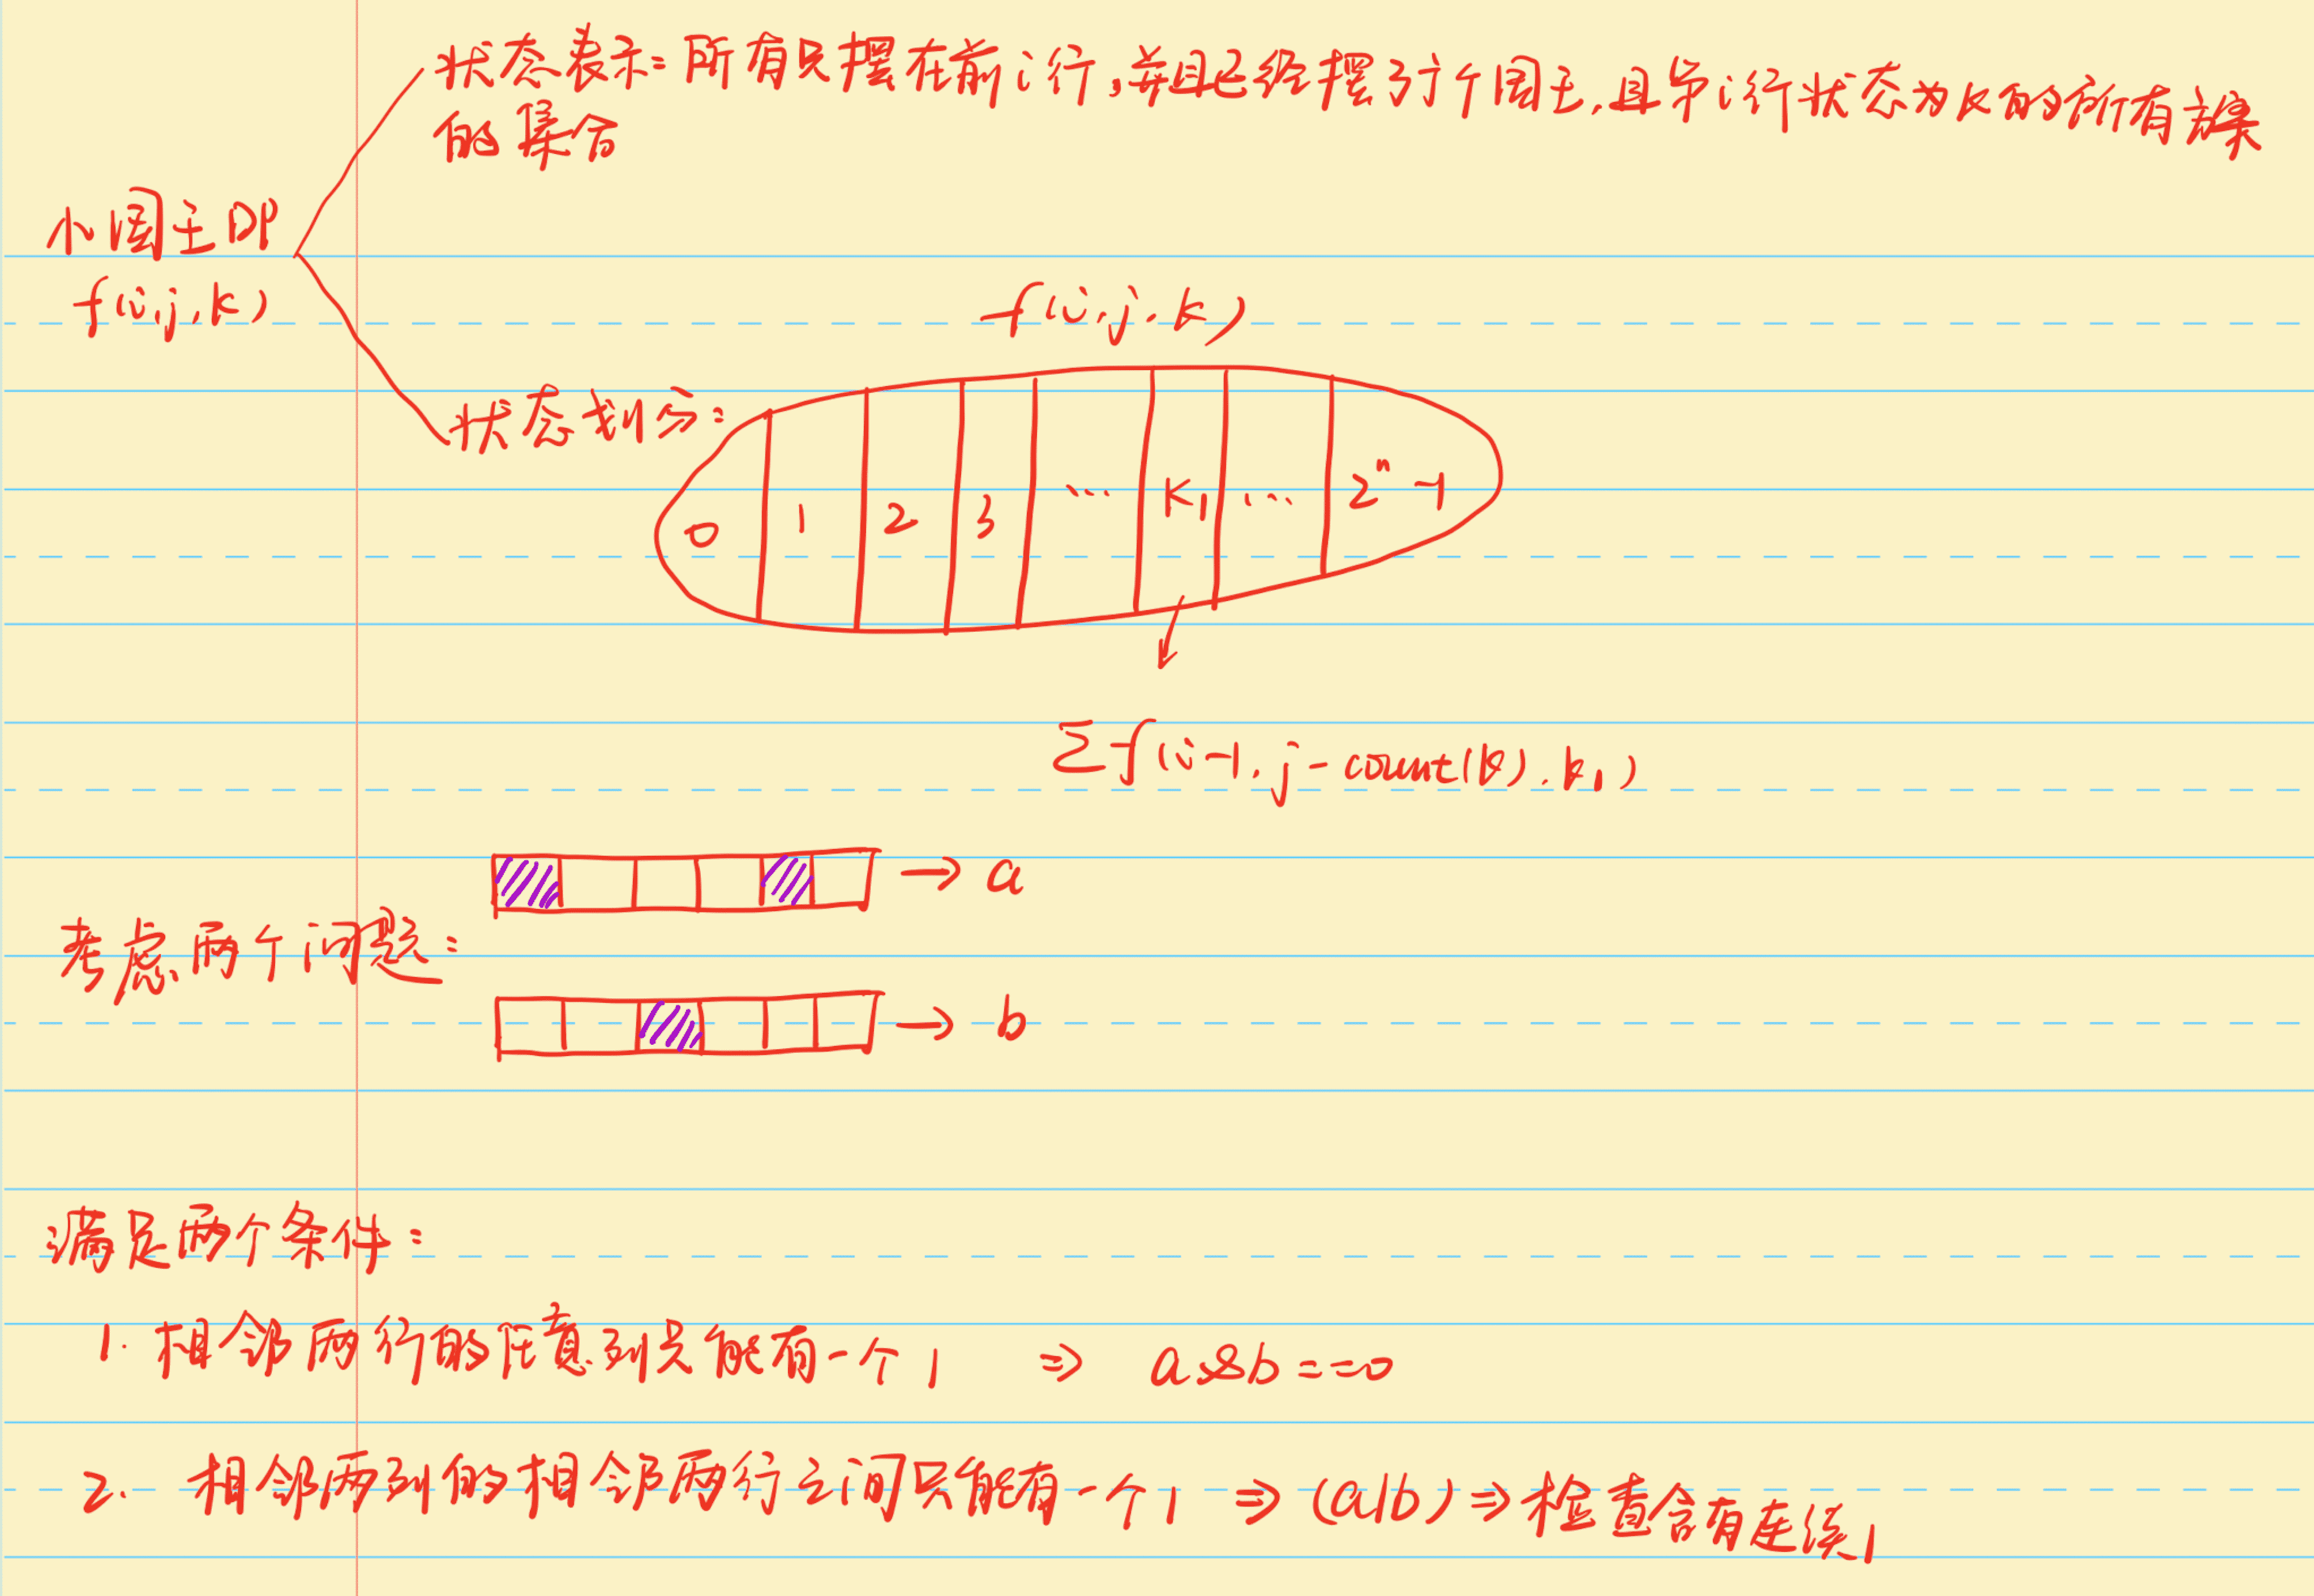 状态表示:所有只摆在前i行,并且已经摆了j个国王,且第i行状态为k的所有方案
的集合
小国王DP
f(i,j,k)
f(i,j,k)
状态划分:
0 1 2 3 ... K₁ ... 2ⁿ-1
Σf(i-1,j-count(k),k₁)
→ a
考虑两个问题:
→ b
满足两个条件:
1. 相邻两行的任意列只能有一个1 ⇒ a&b==0
2. 相邻两列的相邻两行之间只能有一个1 ⇒ (a|b) ⇒ 检查含有连续1